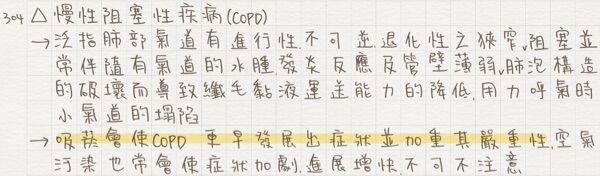 304 △ 慢性阻塞性疾病(COPD)
→ 泛指肺部氣道有進行性、不可逆、退化性之狹窄、阻塞並
常伴隨有氣道的水腫、發炎反應及管壁薄弱、肺泡構造
的破壞而導致纖毛黏液運送能力的降低、用力呼氣時
小氣道的塌陷
→ 吸菸會使COPD 更早發展出症狀並加重其嚴重性、空氣
污染也常會使症狀加劇、進展增快、不可不注意